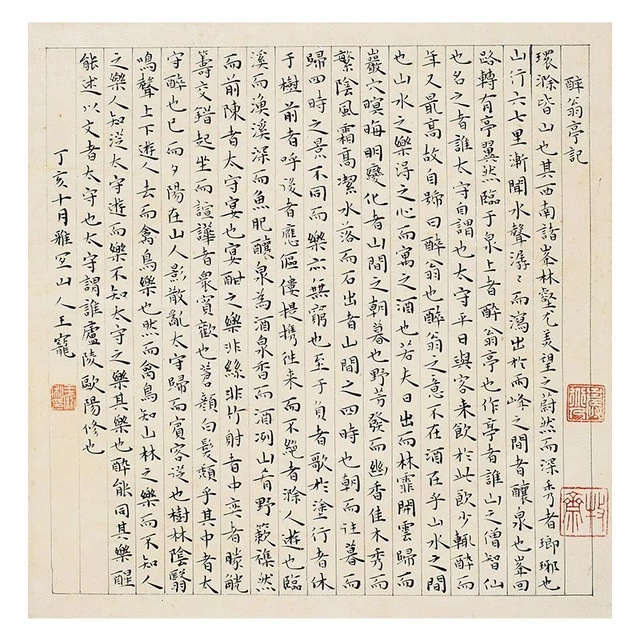 醉翁亭記
環滁皆山也其西南諸峯林壑尤美望之蔚然而深秀者瑯琊也
山行六七里漸聞水聲潺々而瀉出於兩峰之間者釀泉也峯回
路轉有亭翼然臨于泉上者醉翁亭也作亭者誰山之僧智仙
也名之者誰太守自謂也太守平日與客来飲於此飲少輒醉而
年又最高故自號曰醉翁也醉翁之意不在酒在乎山水之間
也山水之樂得之心而寓之酒也若夫日出而林霏開雲歸而
巖穴暝晦明變化者山間之朝暮也野芳發而幽香佳木秀而
繁陰風霜高潔水落而石出者山間之四時也朝而往暮而
歸四時之景不同而樂亦無窮也至于負者歌於塗行者休
于樹前者呼後者應傴僂提携往来而不絶者滁人遊也臨
溪而漁溪深而魚肥釀泉為酒泉香而酒洌山肴野蔌襍然
而前陳者太守宴也宴酣之樂非絲非竹射者中奕者勝觥
籌交錯起坐而諠譁者衆賓歡也蒼顔白髮頽乎其中者太
守醉也已而夕陽在山人影散亂太守歸而賓客從也樹林陰翳
鳴聲上下遊人去而禽鳥樂也然而禽鳥知山林之樂而不知人
之樂人知從太守遊而樂不知太守之樂其樂也醉能同其樂醒
能述以文者太守也太守謂誰廬陵歐陽修也
丁亥十月雅宜山人王寵